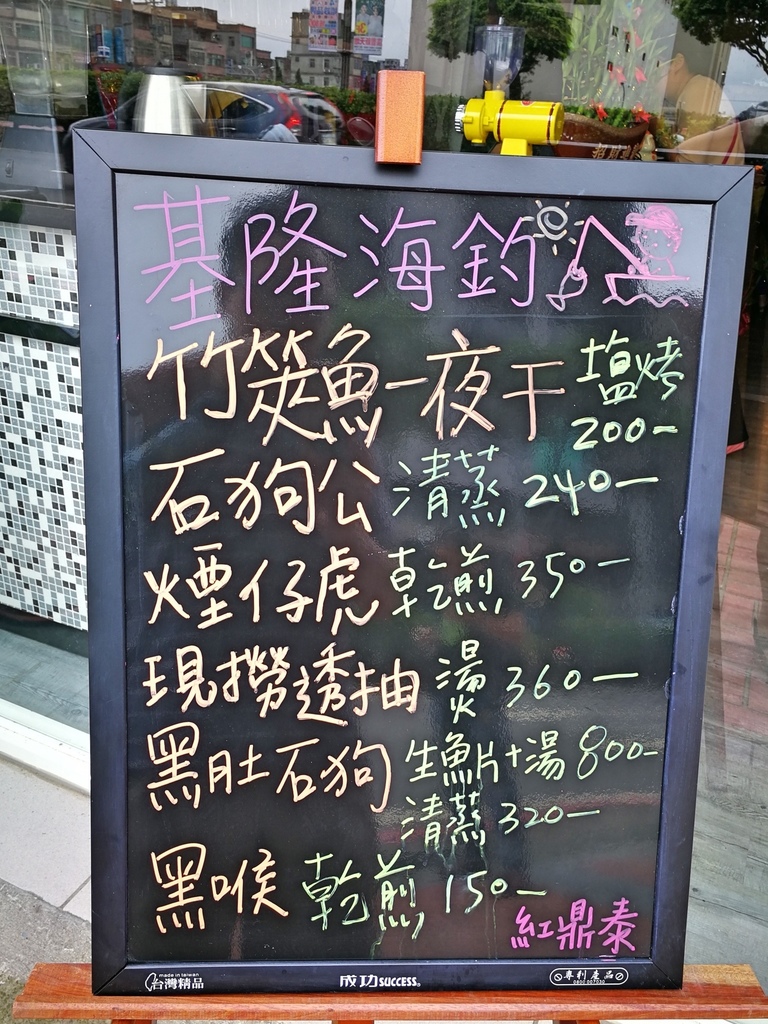 基隆海釣
竹筴魚一夜干 塩烤
200-
石狗公 清蒸 240-
煙仔虎 乾煎 350-
現撈透抽 燙 360-
黑肚石狗 生魚片+湯 800-
清蒸 320-
黑喉 乾煎 150-
紅鼎泰
made in taiwan
台灣精品
成功 SUCCESS.
專利產品
0800 007030